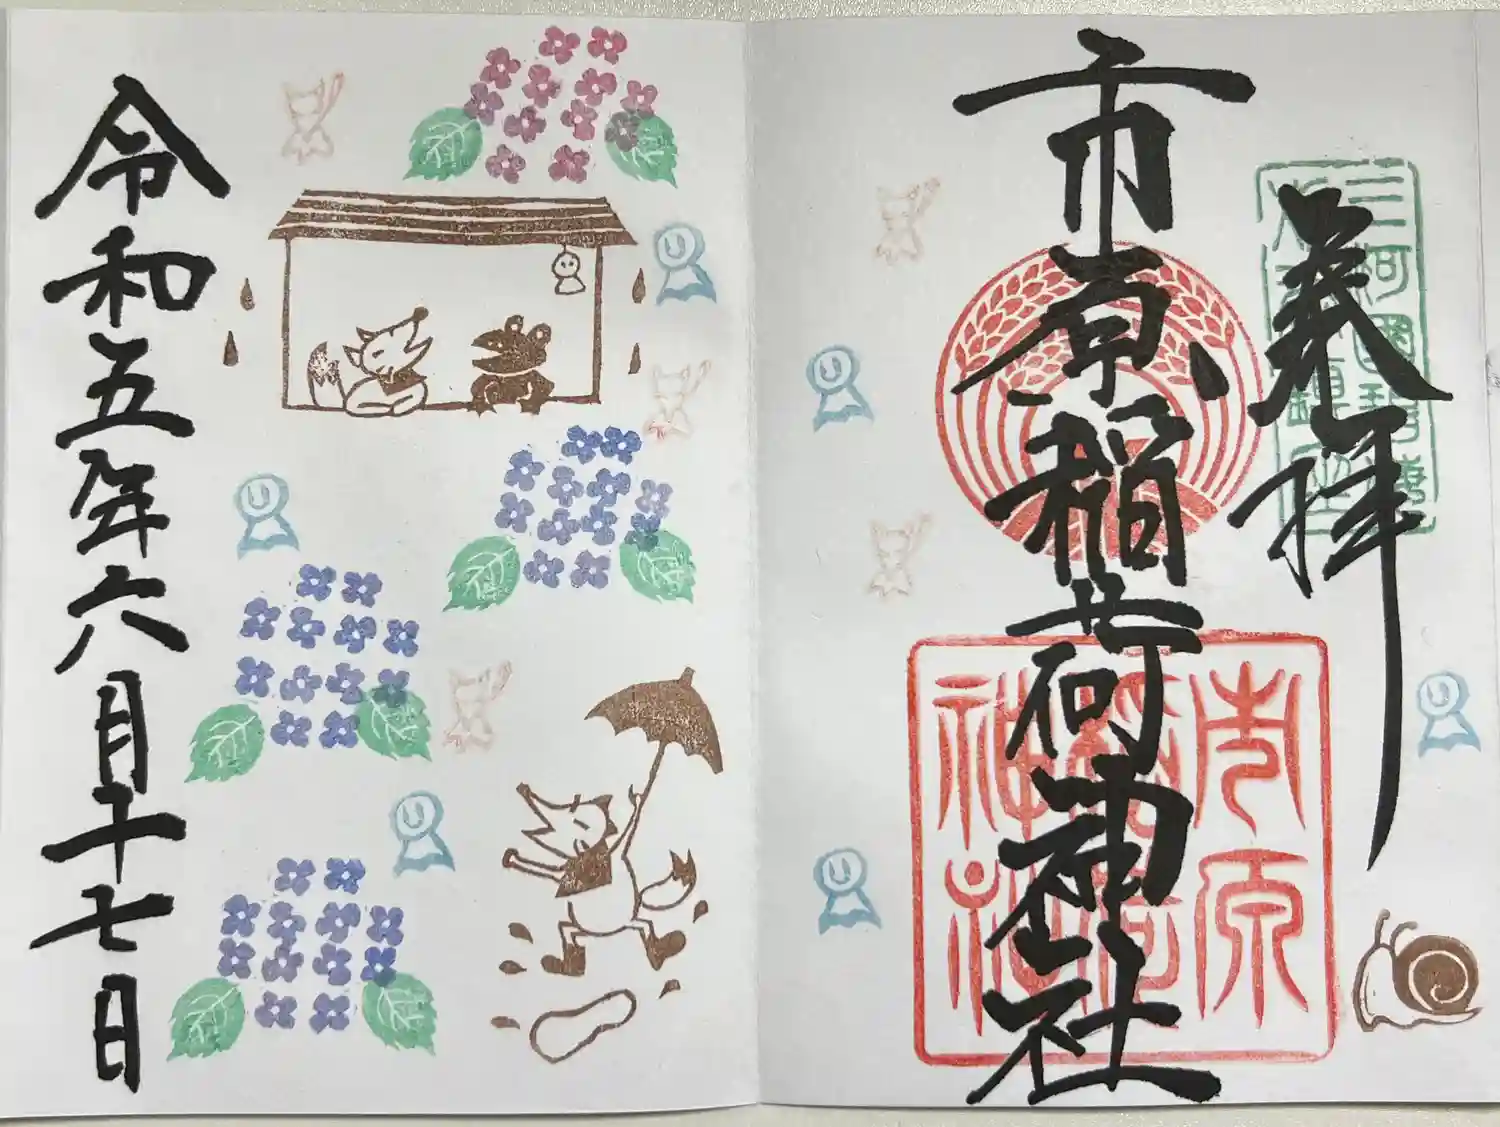 奉拝
三河國碧海
市原稲荷神社
市原
稲荷
神社
令和五年六月十七日